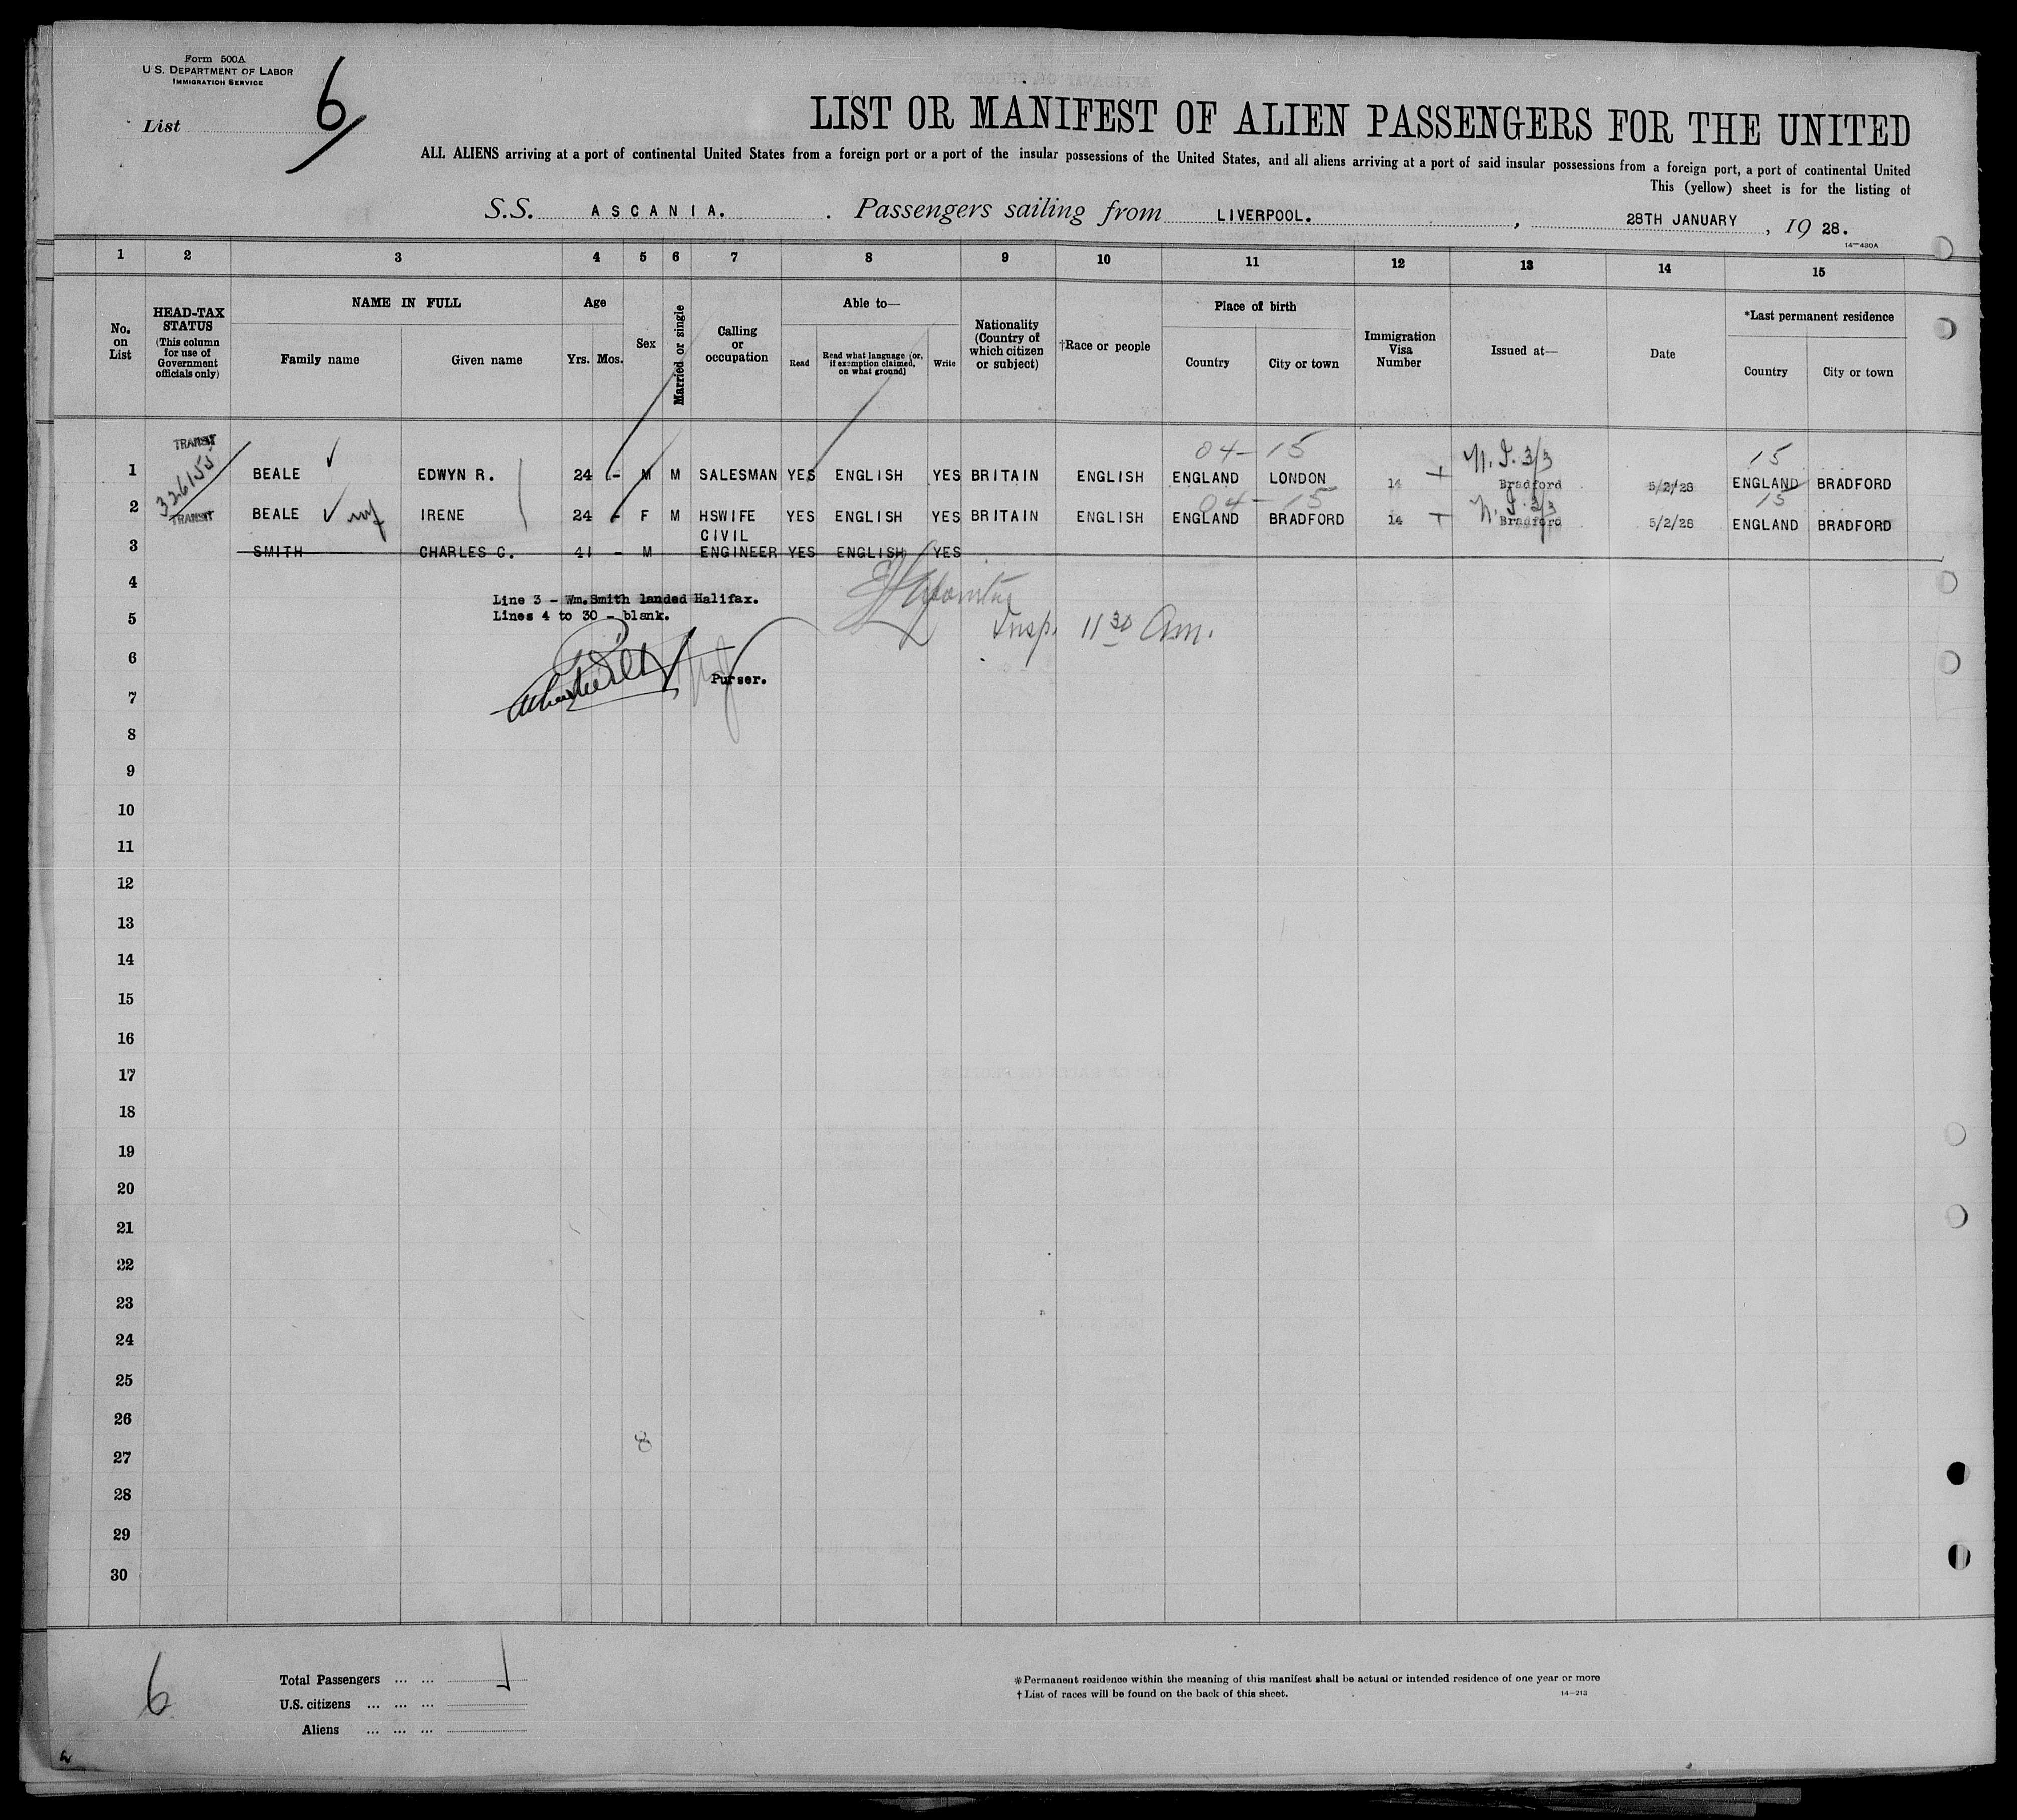 Form 500A
U.S. DEPARTMENT OF LABOR
IMMIGRATION SERVICE
List 6
LIST OR MANIFEST OF ALIEN PASSENGERS FOR THE UNITED
ALL ALIENS arriving at a port of continental United States from a foreign port or a port of the insular possessions of the United States, and all aliens arriving at a port of said insular possessions from a foreign port, a port of continental United
This (yellow) sheet is for the listing of
S.S. ASCANIA. . Passengers sailing from LIVERPOOL. , 28TH JANUARY , 19 28.
14—430A
1 2 3 4 5 6 7 8 9 10 11 12 13 14 15
No. on List
HEAD-TAX STATUS (This column for use of Government officials only)
NAME IN FULL
Family name Given name
Age
Yrs. Mos.
Sex
Married or single
Calling or occupation
Able to—
Read
Read what language (or, if exemption claimed, on what ground)
Write
Nationality (Country of which citizen or subject)
†Race or people
Place of birth
Country City or town
Immigration Visa Number
Issued at—
Date
*Last permanent residence
Country City or town
TRANSIT 04-15 N.I. 3/3 15
1 326155 BEALE EDWYN R. 24 - M M SALESMAN YES ENGLISH YES BRITAIN ENGLISH ENGLAND LONDON 14 Bradford 5/2/28 ENGLAND BRADFORD
04-15 N.I. 3/3 15
2 TRANSIT BEALE IRENE 24 - F M HSWIFE YES ENGLISH YES BRITAIN ENGLISH ENGLAND BRADFORD 14 Bradford 5/2/28 ENGLAND BRADFORD
3 SMITH CHARLES C. 41 - M CIVIL ENGINEER YES ENGLISH YES
4
Line 3 - Wm. Smith landed Halifax.
Lines 4 to 30 - blank.
5
Insp. 11 30 Am.
6
Purser.
7
8
9
10
11
12
13
14
15
16
17
18
19
20
21
22
23
24
25
26
8
27
28
29
30
6
Total Passengers ... ...
U.S. citizens ... ... ...
Aliens ... ... ...
*Permanent residence within the meaning of this manifest shall be actual or intended residence of one year or more
†List of races will be found on the back of this sheet.
14—213